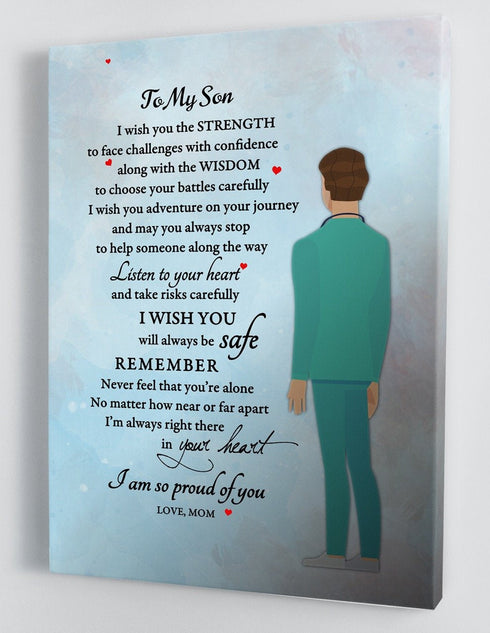 To My Son
I wish you the STRENGTH
to face challenges with confidence
along with the WISDOM
to choose your battles carefully
I wish you adventure on your journey
and may you always stop
to help someone along the way
Listen to your heart
and take risks carefully
I WISH YOU
will always be safe
REMEMBER
Never feel that you're alone
No matter how near or far apart
I'm always right there
in your heart
I am so proud of you
LOVE, MOM